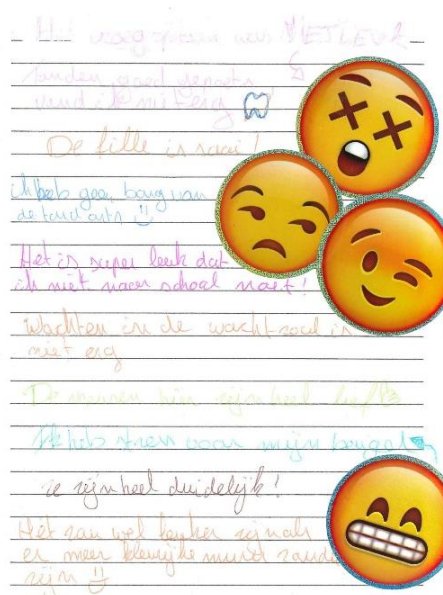 Het vroeg opstaan was NIET LEUK
tanden goed
vind ik niet erg
De file is saai!
ik heb geen bang van
de tandarts
Het is super leuk dat
ik niet naar school moet!
Wachten in de wachtzaal is
niet erg
De mensen hier zijn heel lief
Ik heb stress voor mijn beugel
ze zijn heel duidelijk!
Het zou wel leuker zijn als
er meer kleurrijke
zijn